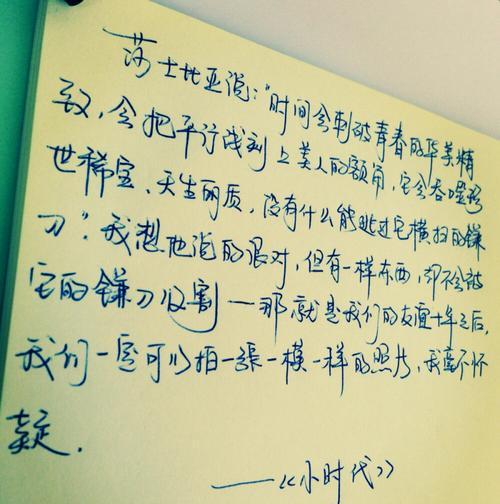 莎士比亚说:"时间会刺破青春的华美精
致,会把平行线刻上美人的额角,它会吞噬稀
世稀宝、天生丽质,没有什么能逃过它横扫的镰
刀"。我想他说的很对,但有一样东西,却不会被
它的镰刀收割——那就是我们的友谊十年之后,
我们一定可以拍一张一模一样的照片,我毫不怀
疑.
——《小时代》